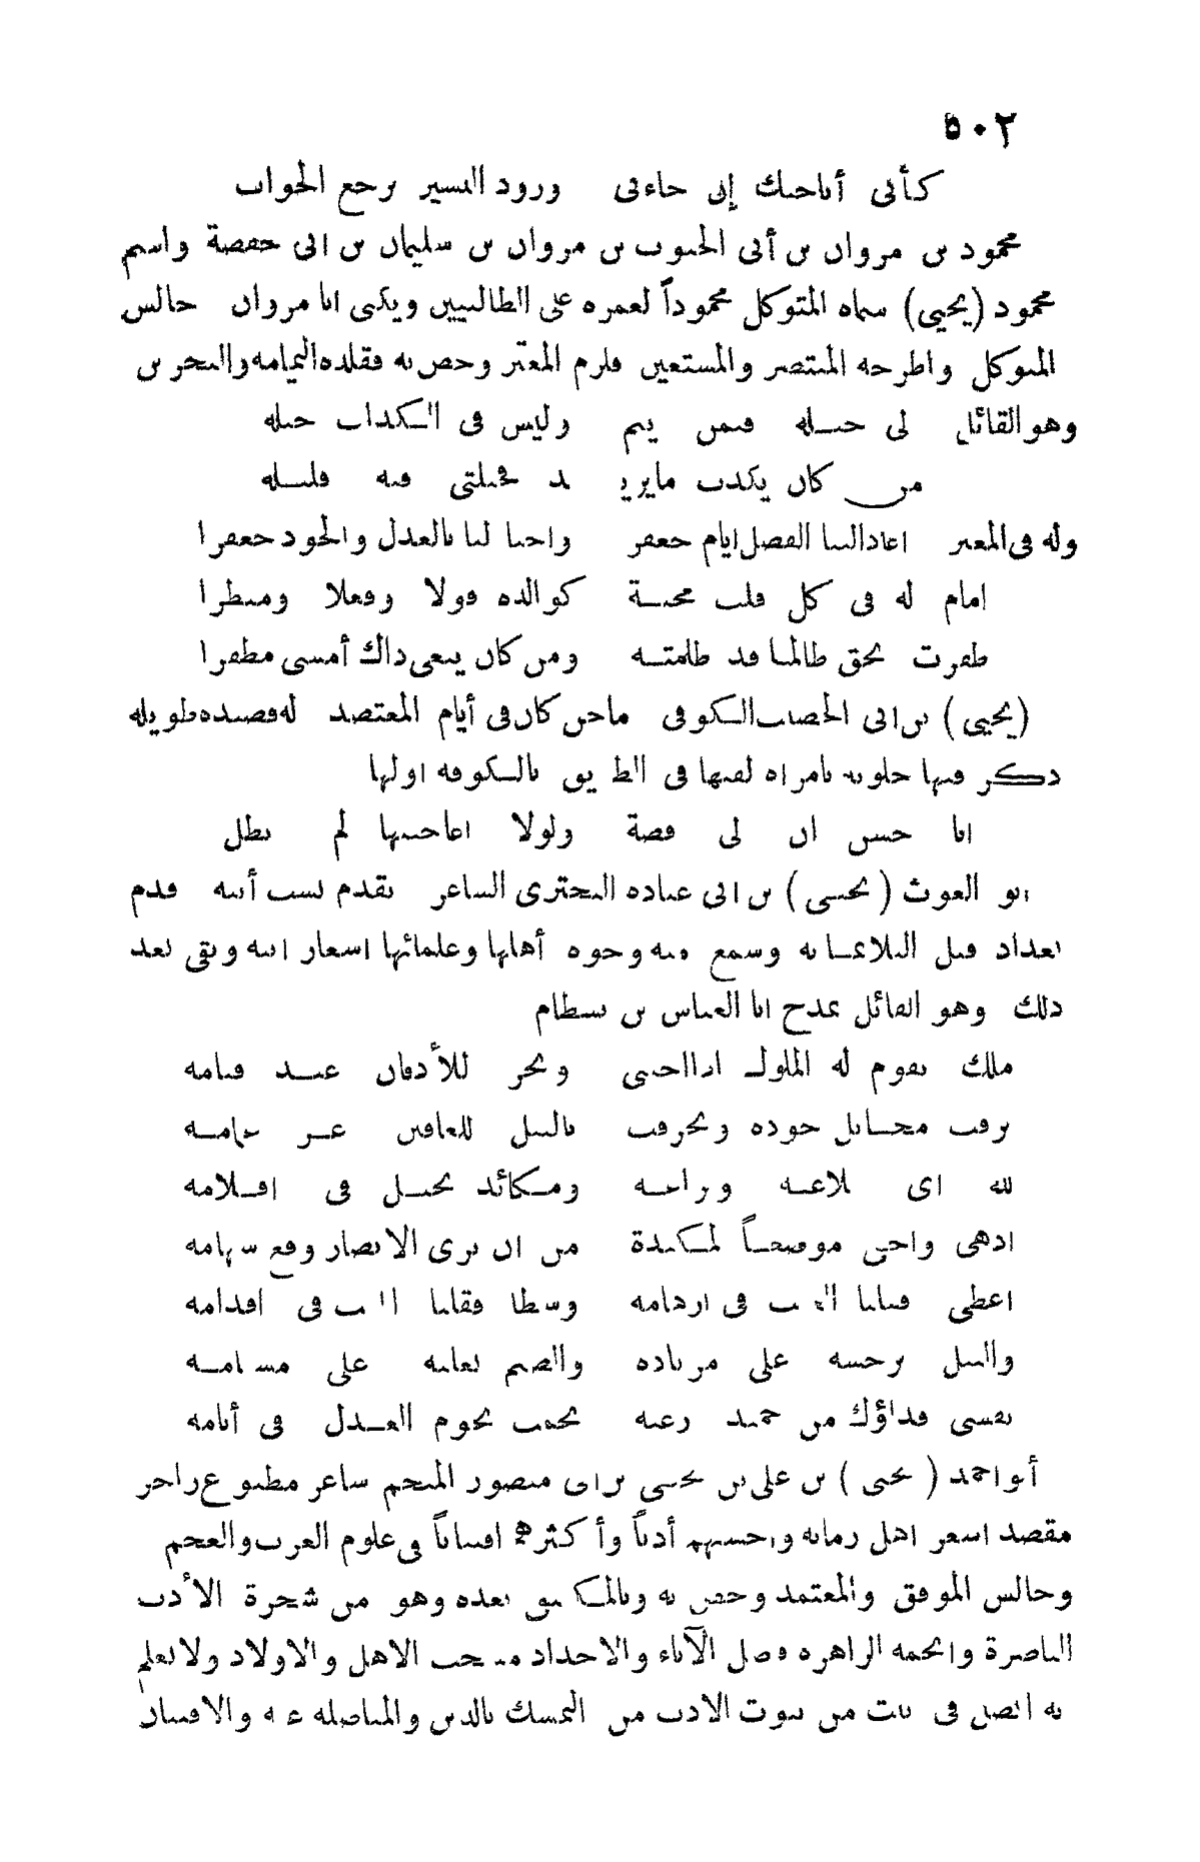 ٥٠٢
كأني أناجيك إن جاءني ورود البشير برجع الجواب
محمود بن مروان بن أبي الجنوب بن مروان بن سليمان بن ابي حفصة واسم
محمود (يحيى) سماه المتوكل محموداً لعمره على الطالبيين ويكنى ابا مروان جالس
المتوكل واطرحه المنتصر والمستعين فلزم المعتز وخص به فقلده اليمامه والبحرين
وهو القائل لي حيله فيمن ينم وليس في الكذاب حيله
من كان يكذب ما يريد فحيلتي فيه قليله
وله في المعتز اعاد الينا الفضل ايام جعفر واحيا لنا بالعدل والجود جعفرا
امام له في كل قلب محبة كوالده قولا وفعلا ومنظرا
ظفرت بحق طالما قد طلبته ومن كان يبغي ذاك أمسى مظفرا
(يحيى) بن ابي الخصاب الكوفي ماجن كان في أيام المعتصد له قصيده طويله
ذكر فيها خلوته بامراه لقيها في الطريق بالكوفه اولها
ابا حسن ان لي قصة ولولا اعاجيبها لم تطل
ابو الغوث (يحيى) بن ابي عباده البحتري الشاعر تقدم نسب أبيه قدم
بغداد قبل الثلاثمايه وسمع منه وجوه أهلها وعلمائها اشعار ابيه وبقي بعد
ذلك وهو القائل يمدح ابا العباس بن بسطام
ملك تقوم له الملوك اذا احتبى وتخر للأذقان عند قيامه
برقت مخايل جوده وتخرقت بالنيل للعافين غر غمامه
لله اي بلاغة وبراعة ومكائد تحتل في اقلامه
ادهى واخفى موضعاً لمكيدة من ان ترى الابصار وقع سهامه
اعطى فقلنا في ارهامه وسطا فقلنا الليث في اقدامه
والنيل نرجيه على مرتاده والضيم نعليه على مستامه
نفسي فداؤك من حميد رعيه نجمت نجوم العدل في أيامه
أبو احمد (يحيى) بن علي بن يحيى بن ابي منصور المنجم شاعر مطبوع راجز
مقصد اشعر اهل زمانه واحسنهم أدباً وأكثرهم افتناناً في علوم العرب والعجم
وجالس الموفق والمعتمد وخص به وبالمكتفي بعده وهو من شجرة الأدب
الناضرة وانجمه الزاهره فضل الآباء والاجداد منجب الاهل والاولاد ولا نعلم
به اتصل في بيت من بيوت الادب من التمسك بالدين والمناضله عنه والافتنان